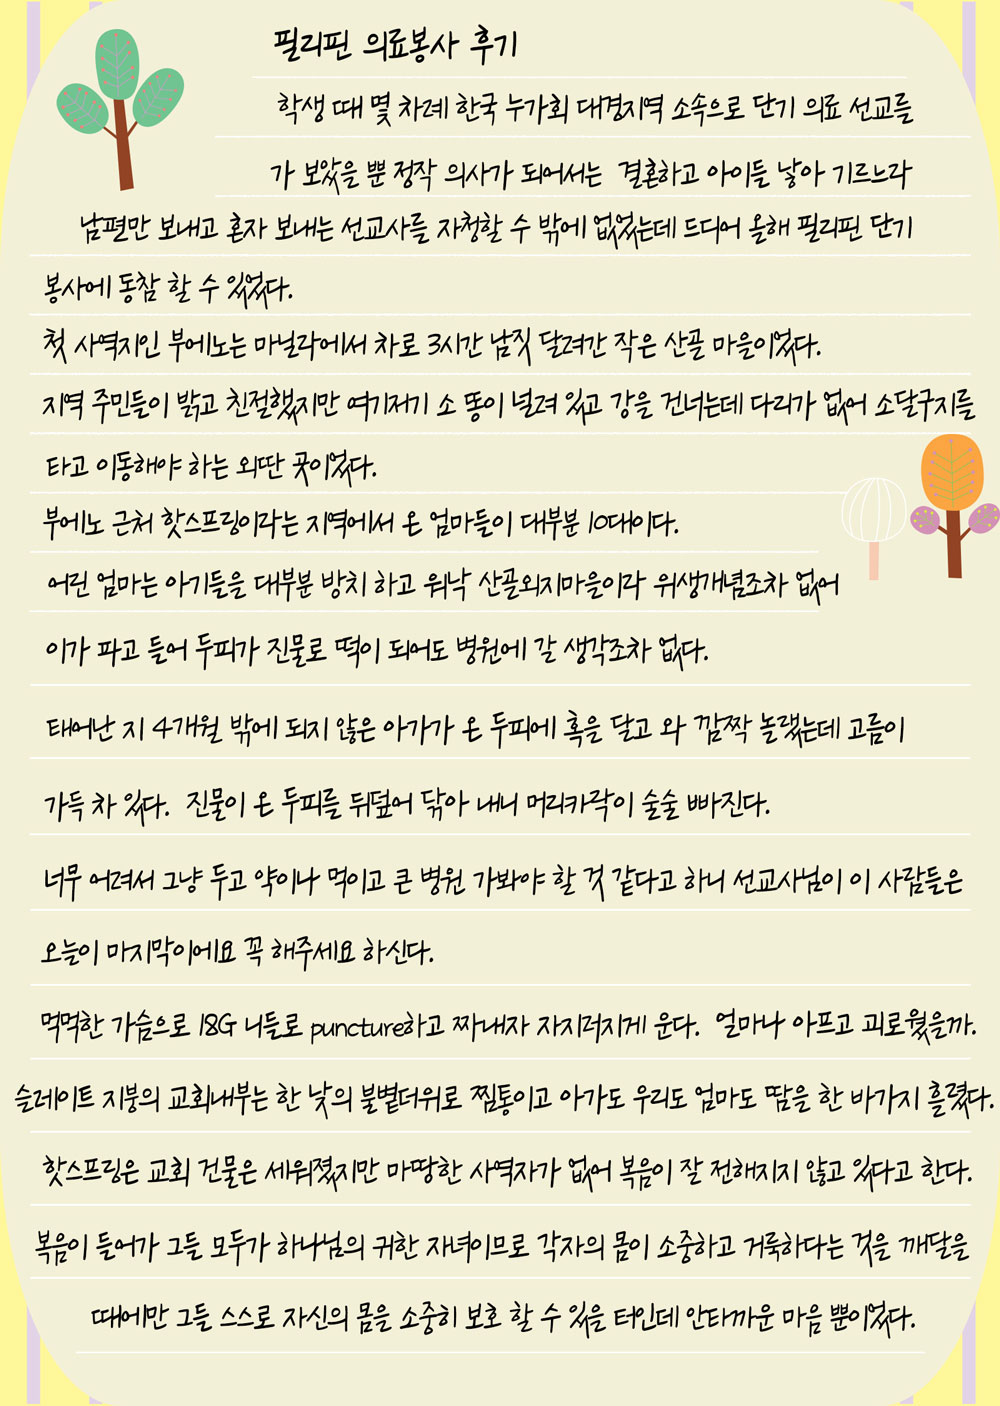 필리핀 의료봉사 후기
학생 때 몇 차례 한국 누가회 대경지역 소속으로 단기 의료 선교를
가 보았을 뿐 정작 의사가 되어서는 결혼하고 아이들 낳아 기르느라
남편만 보내고 혼자 보내는 선교사를 자청할 수 밖에 없었는데 드디어 올해 필리핀 단기
봉사에 동참 할 수 있었다.
첫 사역지인 부에노는 마닐라에서 차로 3시간 남짓 달려간 작은 산골 마을이었다.
지역 주민들이 밝고 친절했지만 여기저기 소 똥이 널려 있고 강을 건너는데 다리가 없어 소달구지를
타고 이동해야 하는 외딴 곳이었다.
부에노 근처 핫스프링이라는 지역에서 온 엄마들이 대부분 10대이다.
어린 엄마는 아기들을 대부분 방치 하고 워낙 산골외지마을이라 위생개념조차 없어
이가 파고 들어 두피가 진물로 떡이 되어도 병원에 갈 생각조차 없다.
태어난 지 4개월 밖에 되지 않은 아가가 온 두피에 혹을 달고 와 깜짝 놀랬는데 고름이
가득 차 있다. 진물이 온 두피를 뒤덮어 닦아 내니 머리카락이 술술 빠진다.
너무 어려서 그냥 두고 약이나 먹이고 큰 병원 가봐야 할 것 같다고 하니 선교사님이 이 사람들은
오늘이 마지막이에요 꼭 해주세요 하신다.
먹먹한 가슴으로 18G 니들로 puncture하고 짜내자 자지러지게 운다. 얼마나 아프고 괴로웠을까.
슬레이트 지붕의 교회내부는 한 낮의 불볕더위로 찜통이고 아가도 우리도 엄마도 땀을 한 바가지 흘렸다.
핫스프링은 교회 건물은 세워졌지만 마땅한 사역자가 없어 복음이 잘 전해지지 않고 있다고 한다.
복음이 들어가 그들 모두가 하나님의 귀한 자녀이므로 각자의 몸이 소중하고 거룩하다는 것을 깨달을
때에만 그들 스스로 자신의 몸을 소중히 보호 할 수 있을 터인데 안타까운 마음 뿐이었다.